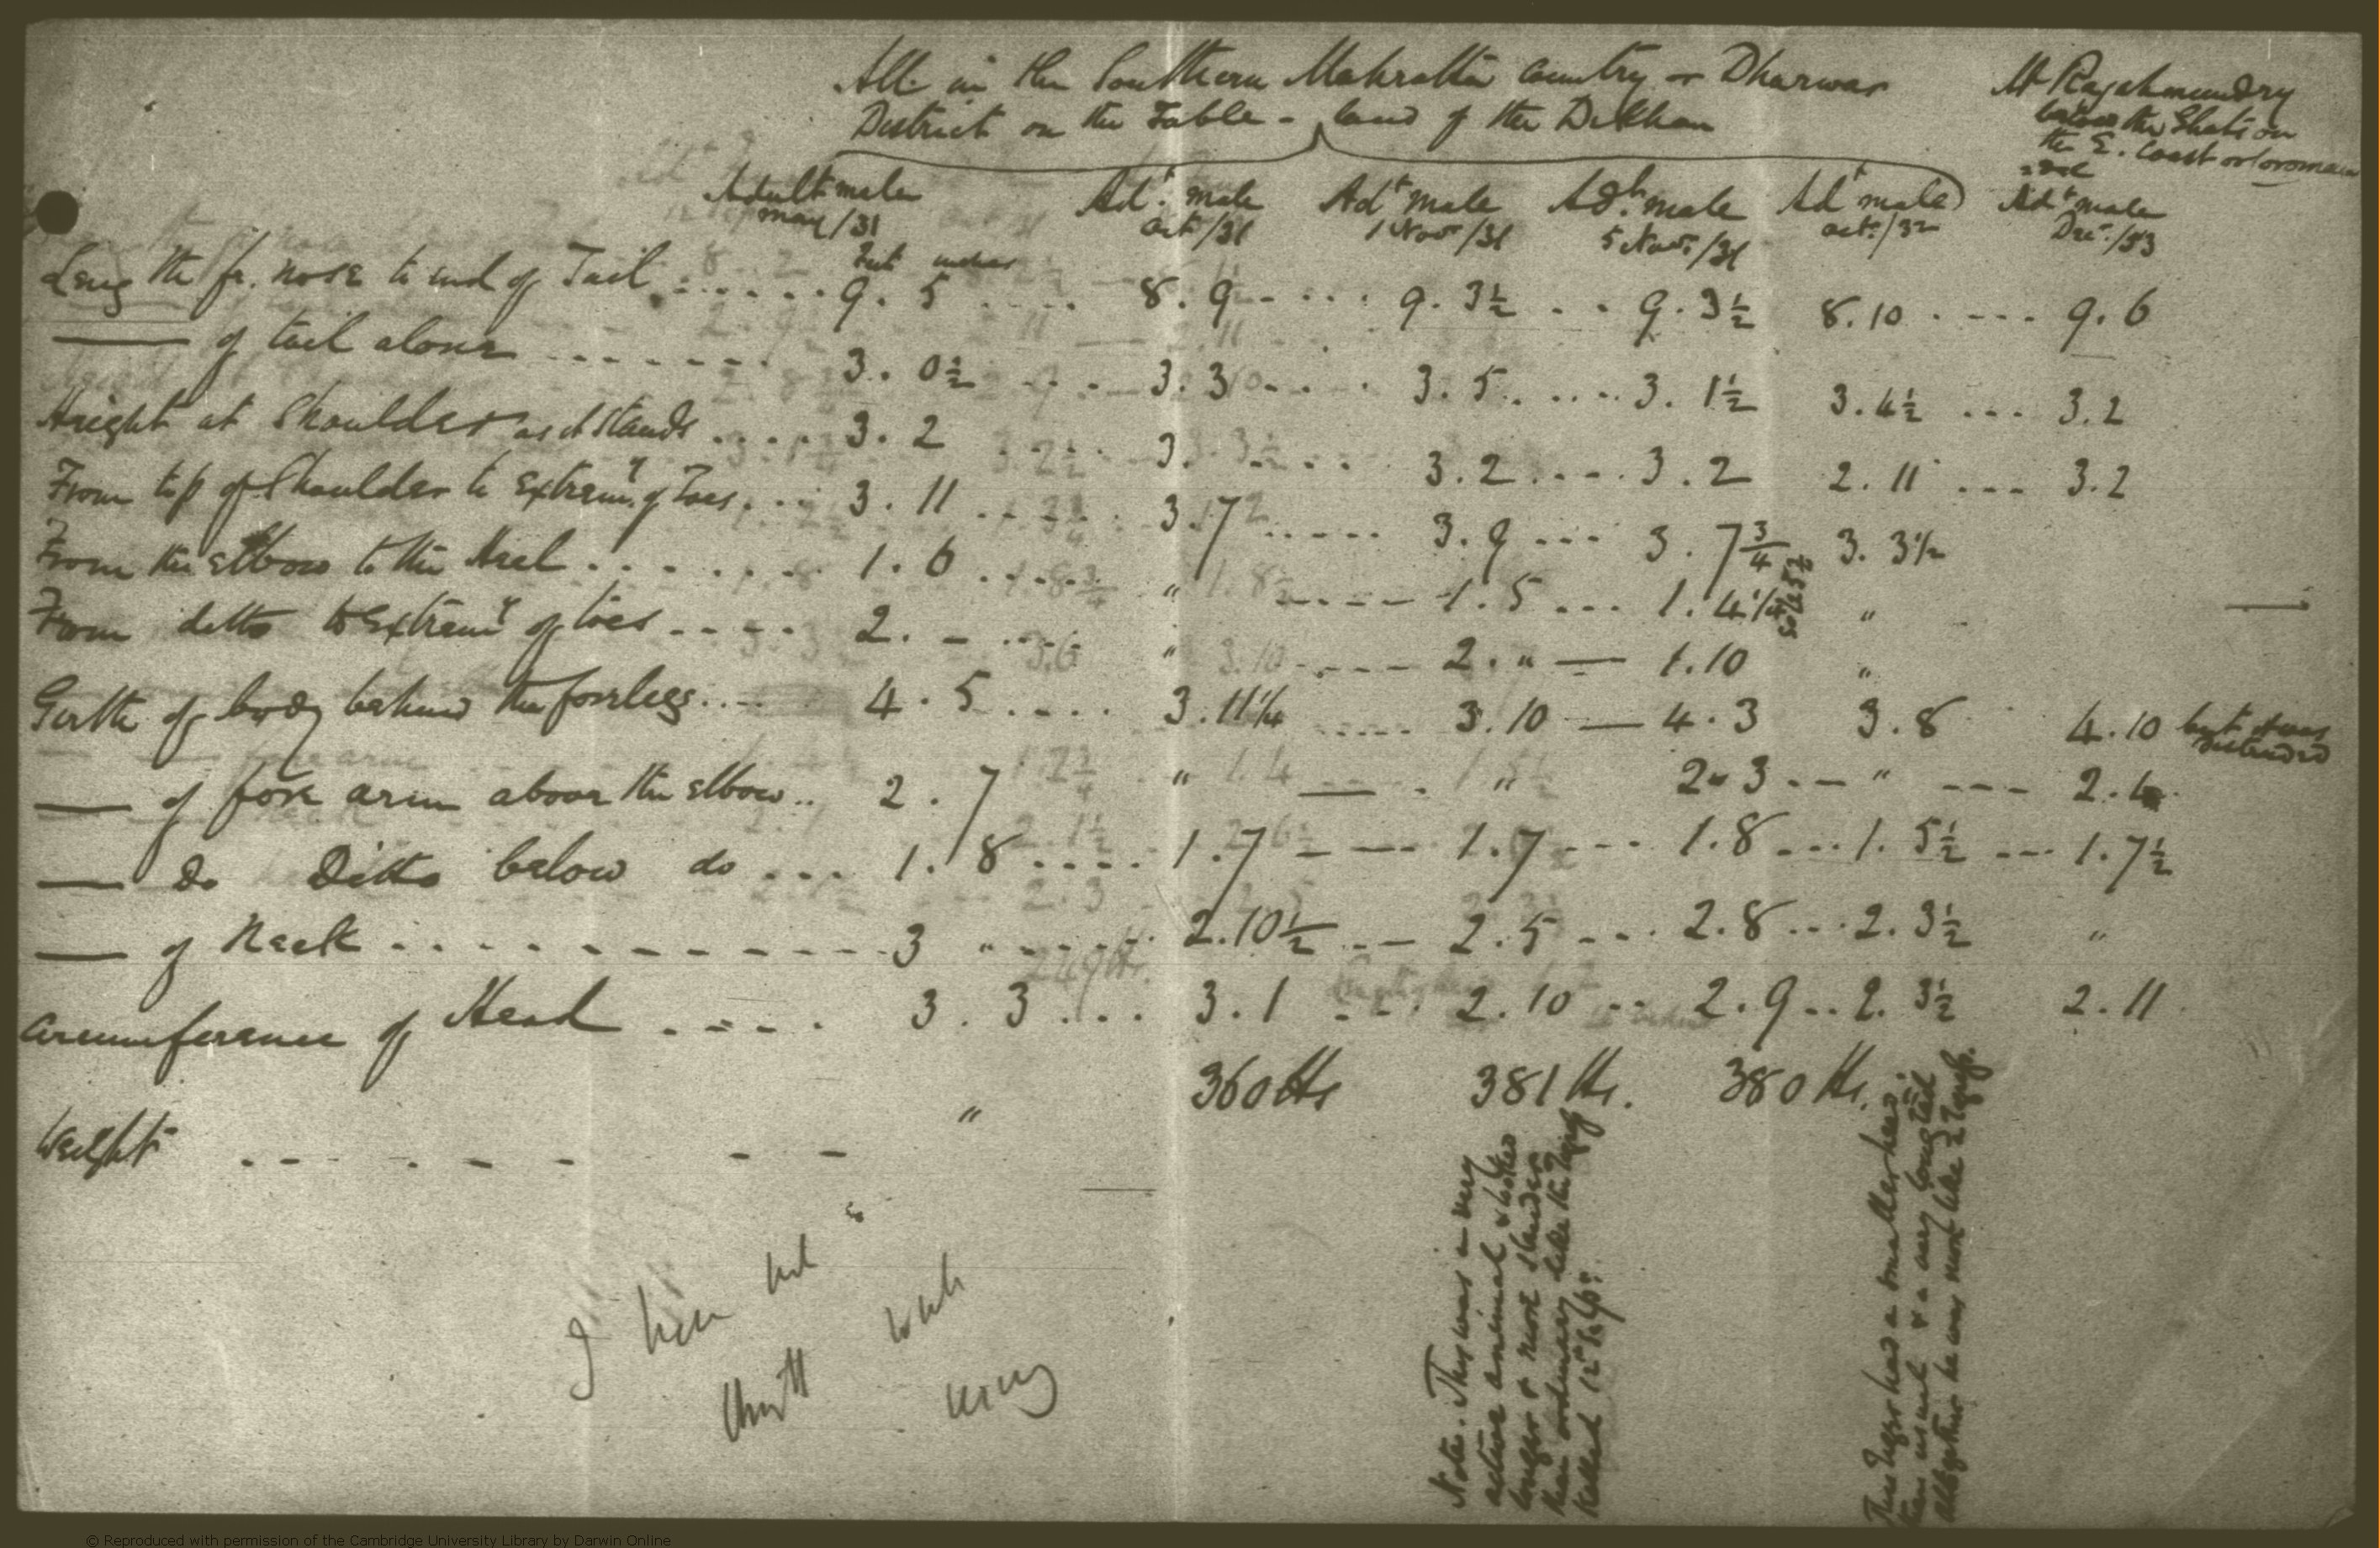 All in the Southern Mahratta Country or Dharwar
District on the Table-land of the Dekhan
At Rajahmundry
below the Ghats on
the E. Coast or Coroman
=del
Adult male
May/31
Adt. male
Oct/31
Adt male
1 Novr/31
Adt. male
5 Novr./31
Adt male
Octr./32
Adt male
Decr./33
feet inches
Length fr. nose to end of Tail ...... 9. 5 .... 8. 9 .... 9. 3½ .. 9. 3½ 8.10 .... 9. 6
—— of tail alone ....... 3. 0½ ... 3. 3 .... 3. 5 .... 3. 1½ 3. 4½ ... 3.2
Height at Shoulder as it stands .... 3. 2 ... 3. .... 3.2 .... 3.2 2. 11 ... 3.2
From top of Shoulder to Extremy. of Toes ... 3. 11 .... 3.7 ..... 3.9 ... 3. 7¾ 3. 3½
From the elbow to the Heel ....... 1. 6 .... " ---- 1. 5 ... 1. 4½ "
From ditto to Extremy of toes ..... 2. - ... " ---- 2. " — 1.10 "
Girth of body behind the forelegs .... 4. 5 .... 3. 11¼ .... 3.10 — 4. 3 3. 8 4. 10 but it was
distended
— of fore arm above the elbow .. 2. 7 " — . " 2" 3 .-- " --- 2.4
— Do Ditto below do ... 1. 8 .... 1.7 --- 1.7 --- 1.8 ... 1. 5½ ... 1.7½
— of Neck ............ 3 " ..... 2.10½ -- 2. 5 ... 2.8 ... 2. 3½ "
Circumference of Head ..... 3. 3 ... 3. 1 ... 2. 10 .. 2. 9 .. 2. 3½ 2. 11
Weight ....... " 360 lbs 381 lbs. 380 lbs.
Note. This was a very
active animal & looked
longer & more slender
than ordinary like the Tiger
killed 12th
This Tiger had a smaller head
than usual & a very long tail
altogether he was more like a Tigress.
I have not
with
© Reproduced with permission of the Cambridge University Library by Darwin Online